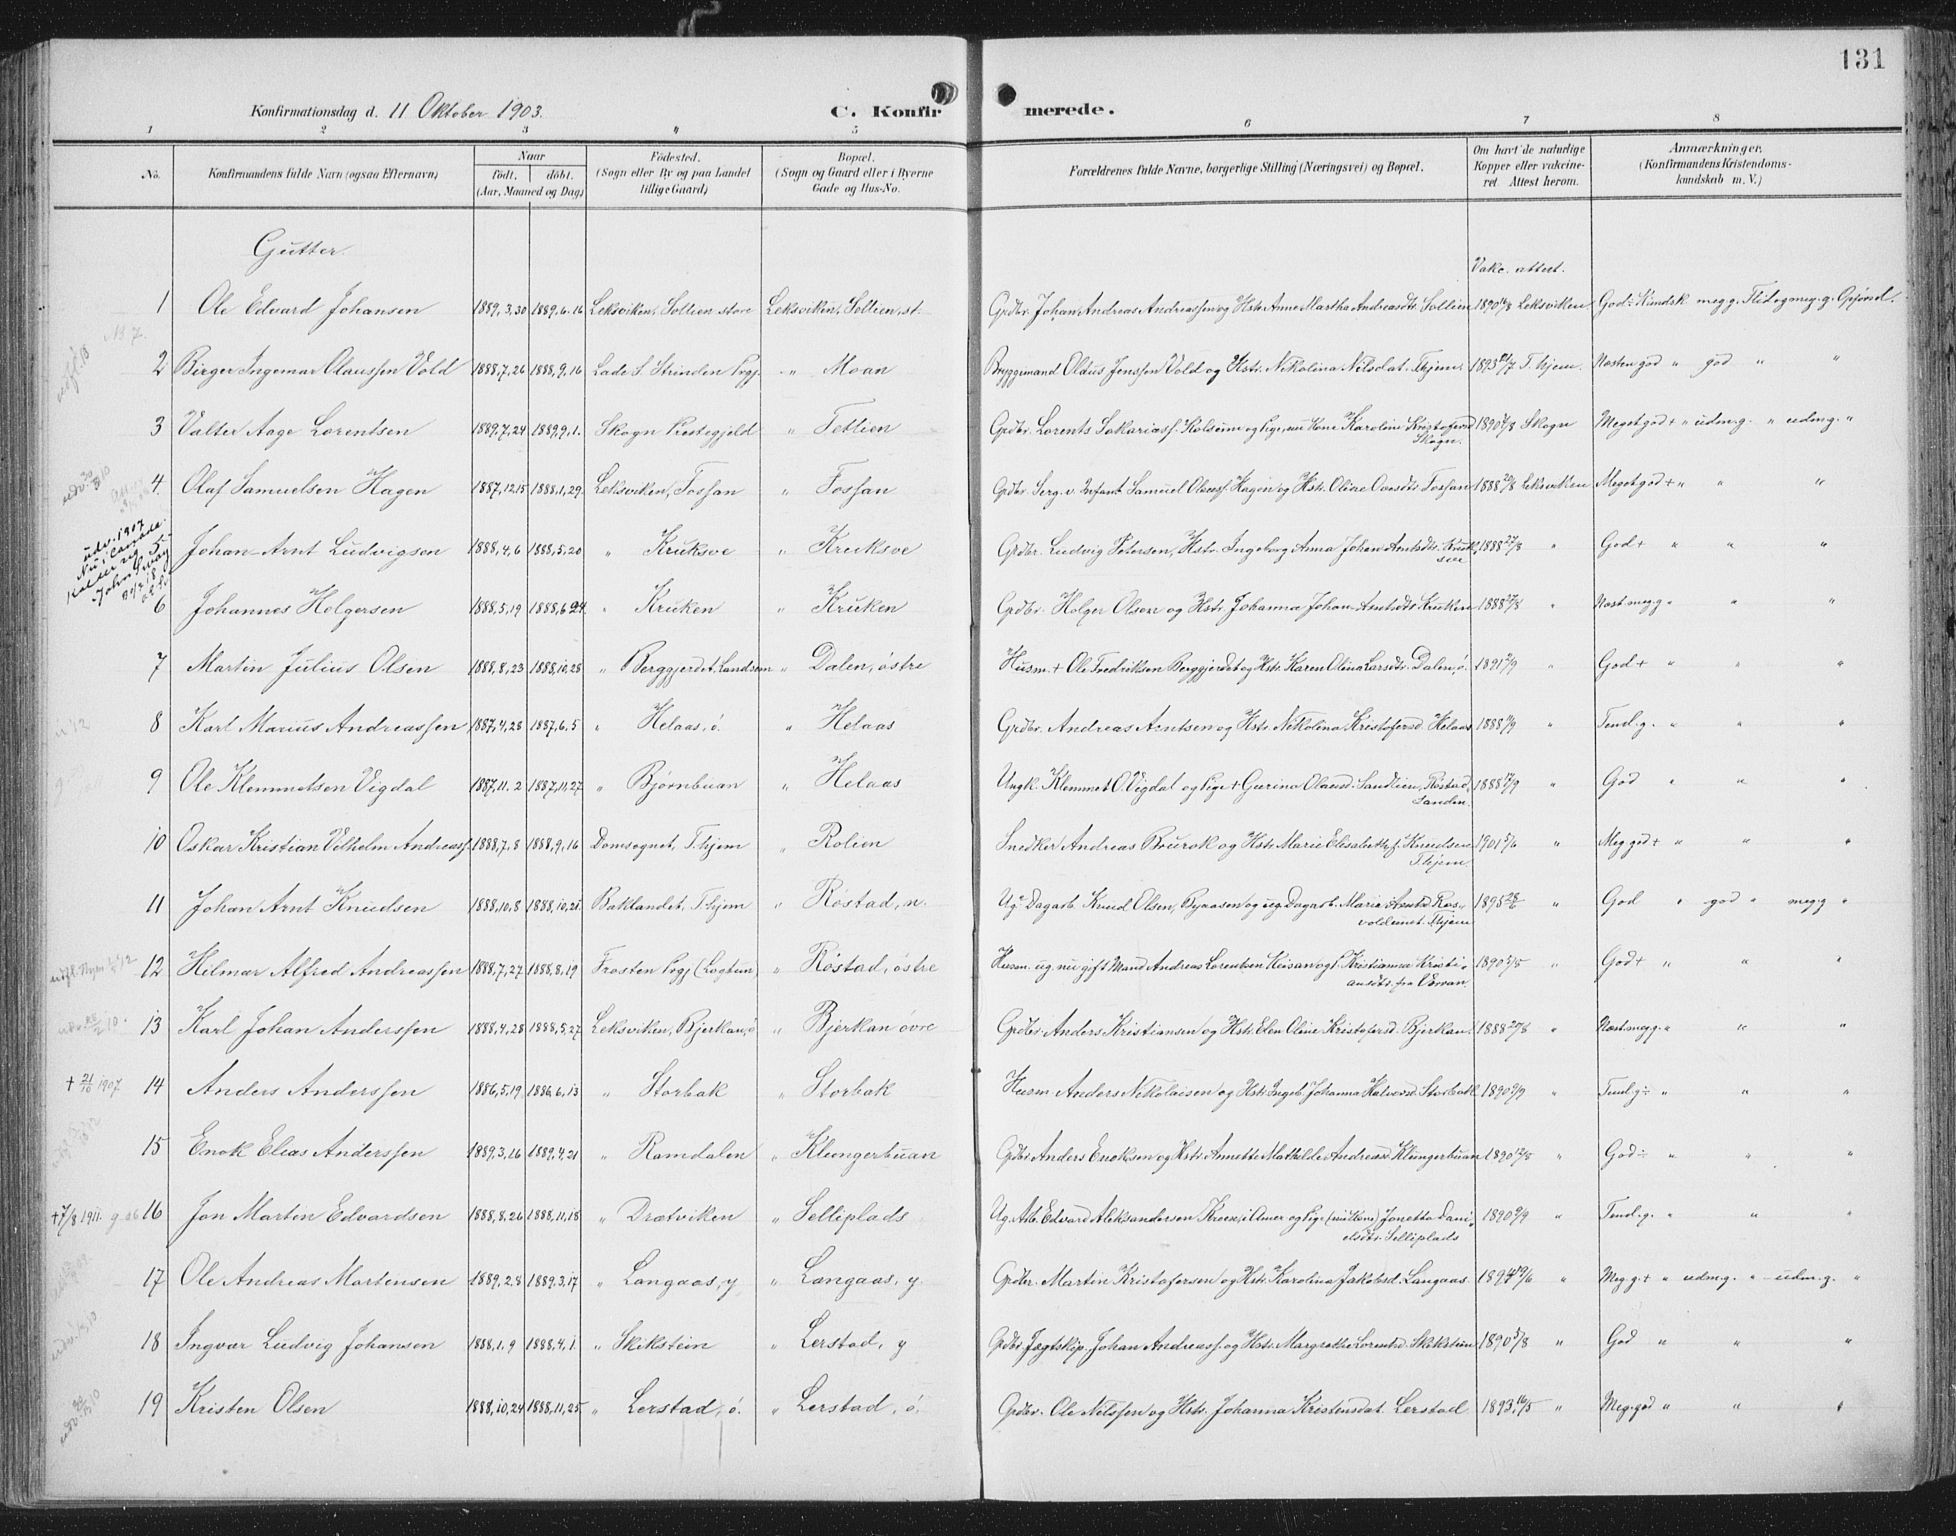 131
Konfirmationsdag d. 11 Oktober 1903.
C. Konfirmerede.
1 2 3 4 5 6 7 8
No. Konfirmandens fulde Navn (ogsaa Efternavn) Naar født. døbt. (Aar, Maaned og Dag) Fødested. (Sogn eller By og paa Landet tillige Gaard) Bopæl. (Sogn og Gaard eller i Byerne Gade og Hus-No. Forældrenes fulde Navne, borgerlige Stilling (Næringsvei) og Bopæl. Om havt de naturlige Kopper eller vakcineret. Attest herom. Anmærkninger. (Konfirmandens Kristendomskundskab m. V.)
Gutter.
Vakc. attest.
1 Ole Edvard Johansen 1889,3,30 1889.6.16 Leksviken, Sollien store Leksviken, Sollien, st. Grdbr. Johan Andreas Andreassen og Hstr. Anne Martha Andreasdtr. Sollien 1890 Leksviken God÷ Kundsk. meg g. Flid og meg. g. Opførsel.
2 Birger Ingemar Olaussen Vold 1888,7,26 1888,9,16 Lade S. Strinden Prgj. " Moan Bryggemand Olaus Jenssen Vold og Hstr. Nikolina Nilsdat. Thjem. 1893 T.hjem. Næsten god " god " "
3 Valter Aage Lorentsen 1889.7,24 1889,9,1. Skogn Prestegjeld " Tettien Grdbr. Lorents Sakariass. Kolseim og Pige, nu Kone Karoline Kristofersd. Skogn. 1890 Skogn Meget god + " udm.g. " udm.g. "
4 Olaf Samuelsen Hagen 1887,12,15 1888,1,29. Leksviken, Fossan " Fossan Grdbr. Serg. v. Infant. Samuel Olsen Hagen og Hstr. Oline Ovesdtr. Fossan 1888 Leksviken Meget god + " " "
udv. 1907
Nu i Canada
Kalder sig
John Sway
5 Johan Arnt Ludvigsen 1888,4,6 1888,5,20 " Kruksve " Kruksve Grdbr. Ludvig Petersen, Hstr. Ingeborg Anna Johan Arntsdtr. Kruksve 1888 27/8 " God+ " " "
6 Johannes Holgersen 1888,5,19 1888,6,24. " Kruken " Kruken Grdbr. Holger Olsen og Hstr. Johanna Johan-Arntsdtr. Kruken 1888 27/8 " Næst. meg g " " "
7 Martin Julius Olsen 1888,8,23 1888,10,28 " Berggjerdet, Landsem " Dalen, østre Husm. + Ole Fredriksen Berggjerdet og Hstr. Karen Olina Larsdtr. Dalen, ø. 1891 " God+ " " "
8 Karl Marius Andreassen 1887,4,28 1887,6,5 " Helaas, ø. " Helaas Grdbr. Andreas Arntsen og Hstr. Nikolina Kristofersd. Helaas 1888 " Temd.g. " " "
9 Ole Klemmetsen Vigdal 1887,11.2 1887,11,27. " Bjørnbuan " Helaas Ungk. Klemmet O. Vigdal og Pige + Gurina Olausd. Sandlien, Røstad, Landen. 1888 17/9 " God " " "
10 Oskar Kristian Vilhelm Andreass. 1888,7,8 1888,9,16 Domsognet, T.hjem " Rolien Snedker Andreas Bourok og Hstr. Marie Elisabeth f. Knudsen T.hjem. 1901 5/6 " Meg god + " " "
11 Johan Arnt Knudsen 1888,10,8 1888,10,21. Baklandet, T.hjem " Røstad, n. Ug. Dagarb. Knud Olsen, Byaasen og ug. Dagarb. Marie Arntsd. Rosvoldemet. T.hjem 1895 " God " god " meg.g "
12 Hilmar Alfred Andreassen 1888,7,27 1888,8,19 Frosten Prgj. (Logtun) " Røstad, østre Husm. ug. nu gift Mand Andreas Lorentsen Reisan og P. Kristianna Kristiansdtr. fra Ørran 1890 " God+ " " "
13 Karl Johan Anderssen 1888,4,28 1888,5,27 Leksviken, Bjerkan, ø " Bjerkan øvre Grdbr. Anders Kristiansen og Hstr. Elen Oline Kristofersd. Bjerkan 1888 27/8 " Næst. meg g. " " "
+ 21/10 1907 14 Anders Anderssen 1886,5,19 1886,6,13 " Storbak " Storbak Husm. Anders Nikolaisen og Hstr. Ingeb. Johanna Halvorsd. Storbak 1890 " Temd. g÷ " " "
15 Enok Elias Anderssen 1889,3,16 1889,4,21 " Ramdalen " Klungerbuan Gdbr. Anders Enoksen og Hstr. Annette Mathilde Andreasd. Klungerbuan 1890 " God÷ " " "
+7/8 1911. 16 Jon Martin Edvardsen 1888,8,26 1888,11,18 " Drætviken " Selliplads Ug. Arb. Edvard Aleksandersen og Pige (nu Kone) Jonetta Danielsdtr. Selliplads 1890 " Temd.g. " " "
17 Ole Andreas Martensen 1889,2.8 1889.3,17 " Langaas, y " Langaas, y. Grdbr. Martin Kristofersen og Hstr. Karolina Jakobsd. Langaas. 1894 " Meg.g.+ " udm.g. " udm.g. "
18 Ingvar Ludvig Johansen 1888.1.9 1888,4,1. " Skikstein " Lerstad, y Grdbr. Jægtskip. Johan Andreass. og Hstr. Margrethe Lorentsd. Skikstein 1890 " God " " "
19 Kristen Olsen 1888,10,24 1888,11,25. " Lerstad, ø. " Lerstad, ø. Grdbr. Ole Nilssen og Hstr. Johanna Kristensdat. Lerstad 1893 16/5 " Meg.god " " "